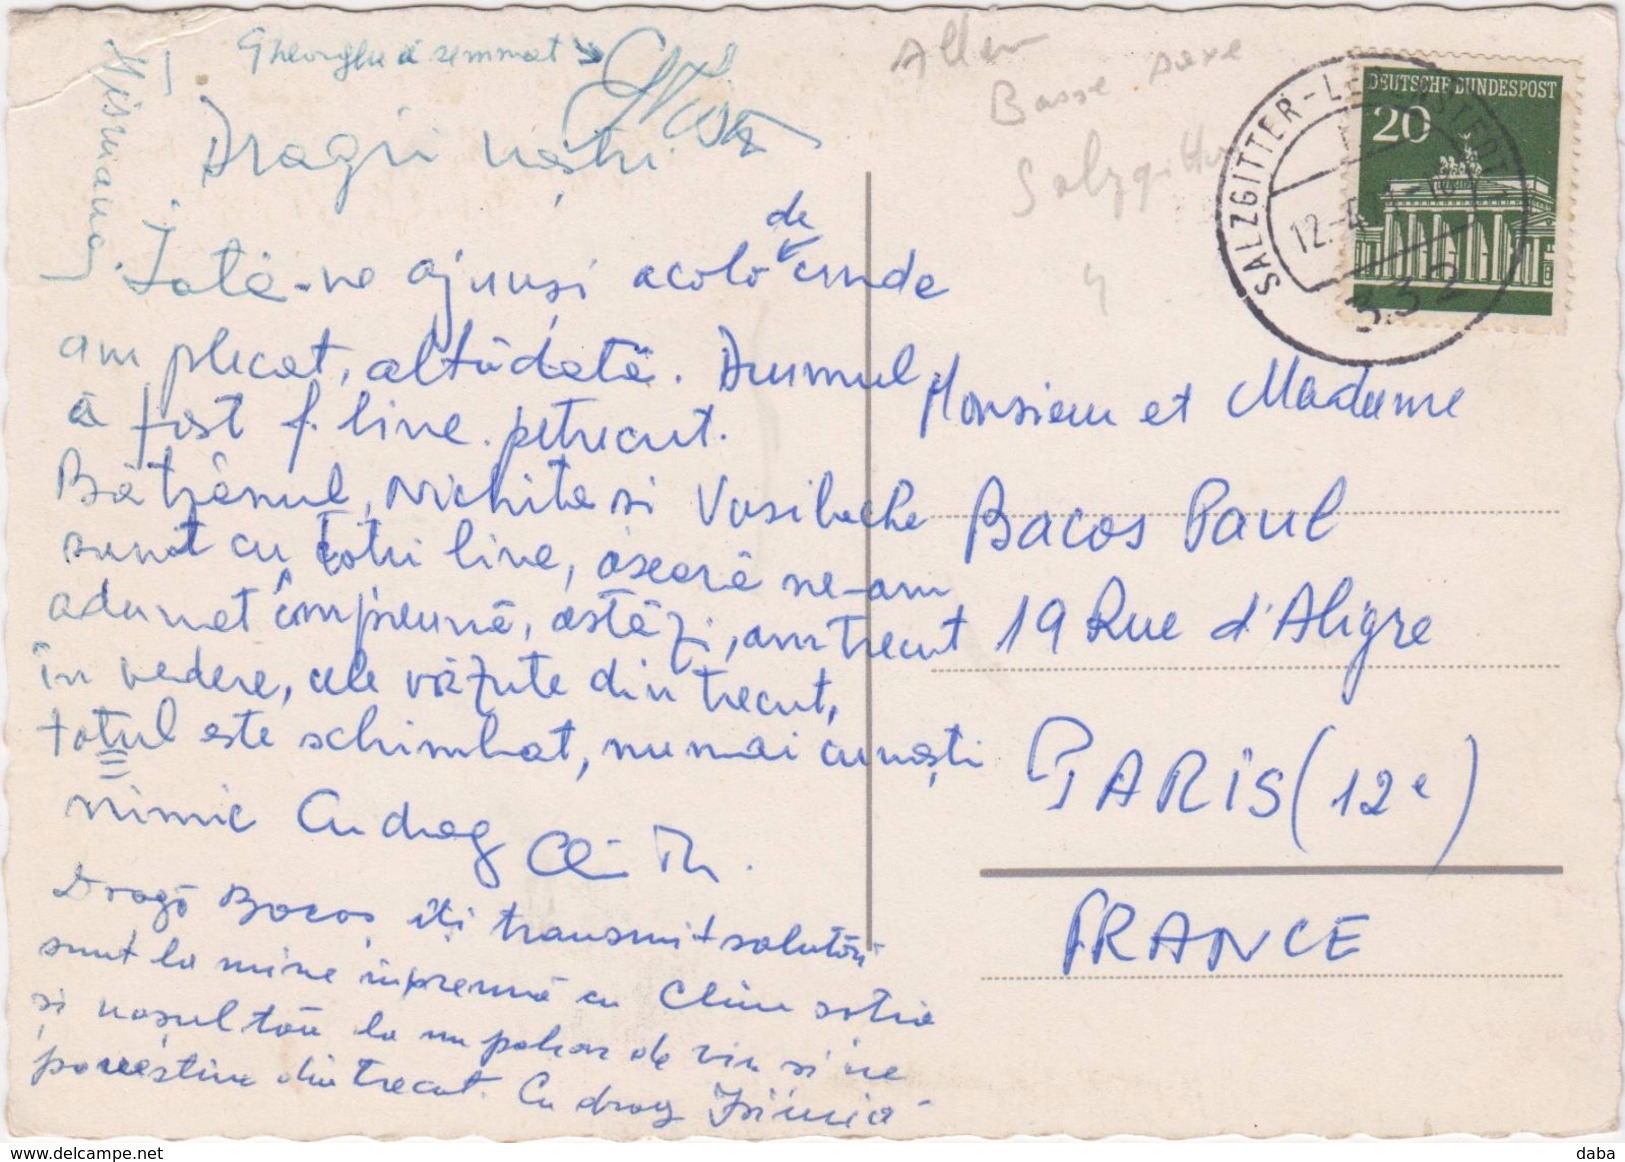 Gheorghe a semnat
Dragii noștri
Iată-ne ajunși acolo de unde
am plecat, altădată. Drumul
a fost f. bine petrecut.
Bătrânul, Nichita si Vasilache
sunt cu toții bine, aseară ne-am
adunat împreună, astăzi, am trecut
în vedere, cele văzute din trecut,
totul este schimbat, nu mai cunoști
nimic Cu drag
Dragă Bacos, iți transmit salutări
sunt la mine impreună cu Clim sotia
și nașul tău la un pahar de vin si ne
povestim din trecut. Cu drag
Allem
Basse Saxe
Salzgitter
4
DEUTSCHE BUNDESPOST
20
SALZGITTER-LEBENSTEDT
12.-4
332
Monsieur et Madame
Bacos Paul
19 Rue d'Aligre
PARIS (12e)
FRANCE
daba